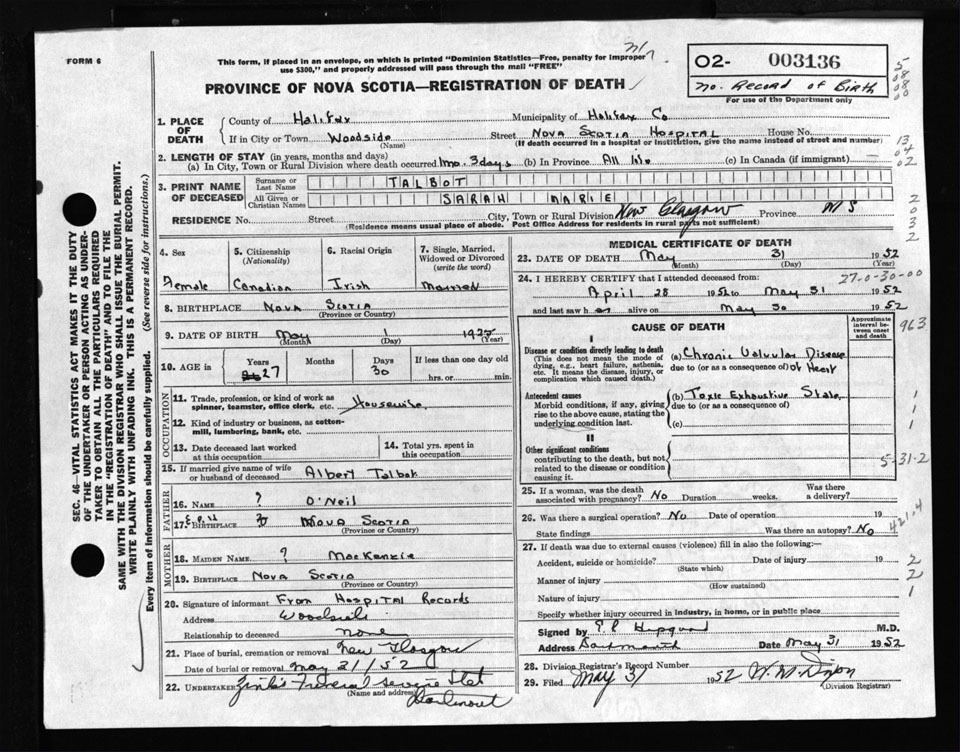 FORM 6
This form, if placed in an envelope, on which is printed "Dominion Statistics—Free, penalty for improper
use $300," and properly addressed will pass through the mail "FREE"
PROVINCE OF NOVA SCOTIA—REGISTRATION OF DEATH
O2- 003136
No. Record of Birth
For use of the Department only
1. PLACE OF DEATH
County of Halifax Municipality of Halifax Co
If in City or Town Woodside Street Nova Scotia Hospital House No.
(Name) (If death occurred in a hospital or institution, give the name instead of street and number)
2. LENGTH OF STAY (in years, months and days)
(a) In City, Town or Rural Division where death occurred 1mo. 3days (b) In Province All life (c) In Canada (if immigrant)
3. PRINT NAME OF DECEASED
Surname or Last Name TALBOT
All Given or Christian Names SARAH MARIE
RESIDENCE No. Street City, Town or Rural Division New Glasgow Province N S
(Residence means usual place of abode. Post Office Address for residents in rural parts not sufficient)
4. Sex
Female
5. Citizenship (Nationality)
Canadian
6. Racial Origin
Irish
7. Single, Married, Widowed or Divorced (write the word)
Married
8. BIRTHPLACE Nova Scotia
(Province or Country)
9. DATE OF BIRTH May 1 1925
(Month) (Day) (Year)
10. AGE in
Years Months Days If less than one day old
27 30 hrs. or min.
OCCUPATION
11. Trade, profession, or kind of work as spinner, teamster, office clerk, etc. Housewife
12. Kind of industry or business, as cotton-mill, lumbering, bank, etc.
13. Date deceased last worked at this occupation
14. Total yrs. spent in this occupation
15. If married give name of wife or husband of deceased Albert Talbot
FATHER
16. Name ? O'Neil
17. Birthplace Nova Scotia
(Province or Country)
MOTHER
18. Maiden Name ? MacKenzie
19. Birthplace Nova Scotia
(Province or Country)
20. Signature of informant From Hospital Records
Address Woodside
Relationship to deceased none
21. Place of burial, cremation or removal New Glasgow
Date of burial or removal May 31/52
22. Undertaker Zink's Funeral Service
(Name and address)
Dartmouth
MEDICAL CERTIFICATE OF DEATH
23. DATE OF DEATH May 31 1952
(Month) (Day) (Year)
24. I HEREBY CERTIFY that I attended deceased from:
April 28 1952 to May 31 1952
and last saw h er alive on May 30 1952
27-0-30-00
CAUSE OF DEATH
Approximate interval between onset and death
963
I
Disease or condition directly leading to death
(This does not mean the mode of dying, e.g., heart failure, asthenia, etc. It means the disease, injury, or complication which caused death.)
(a) Chronic Valvular Disease
due to (or as a consequence of) of Heart
Antecedent causes
Morbid conditions, if any, giving rise to the above cause, stating the underlying condition last.
(b) Toxic Exhaustive State
due to (or as a consequence of)
(c)
II
Other significant conditions
contributing to the death, but not related to the disease or condition causing it.
5-31-2
25. If a woman, was the death associated with pregnancy? No Duration weeks. Was there a delivery?
26. Was there a surgical operation? No Date of operation 19
State findings Was there an autopsy? No
421.4
27. If death was due to external causes (violence) fill in also the following:—
Accident, suicide or homicide? Date of injury 19
(State which)
Manner of injury
(How sustained)
Nature of injury
Specify whether injury occurred in industry, in home, or in public place
Signed by M.D.
Address Dartmouth Date May 31 1952
28. Division Registrar's Record Number
29. Filed May 31 1952 W. M. Dixon
(Division Registrar)
SEC. 46—VITAL STATISTICS ACT MAKES IT THE DUTY
OF THE UNDERTAKER OR PERSON ACTING AS UNDER-
TAKER TO OBTAIN ALL THE PARTICULARS REQUIRED
IN THE "REGISTRATION OF DEATH" AND TO FILE THE
SAME WITH THE DIVISION REGISTRAR WHO SHALL ISSUE THE BURIAL PERMIT.
WRITE PLAINLY WITH UNFADING INK. THIS IS A PERMANENT RECORD.
Every item of information should be carefully supplied. (See reverse side for instructions.)